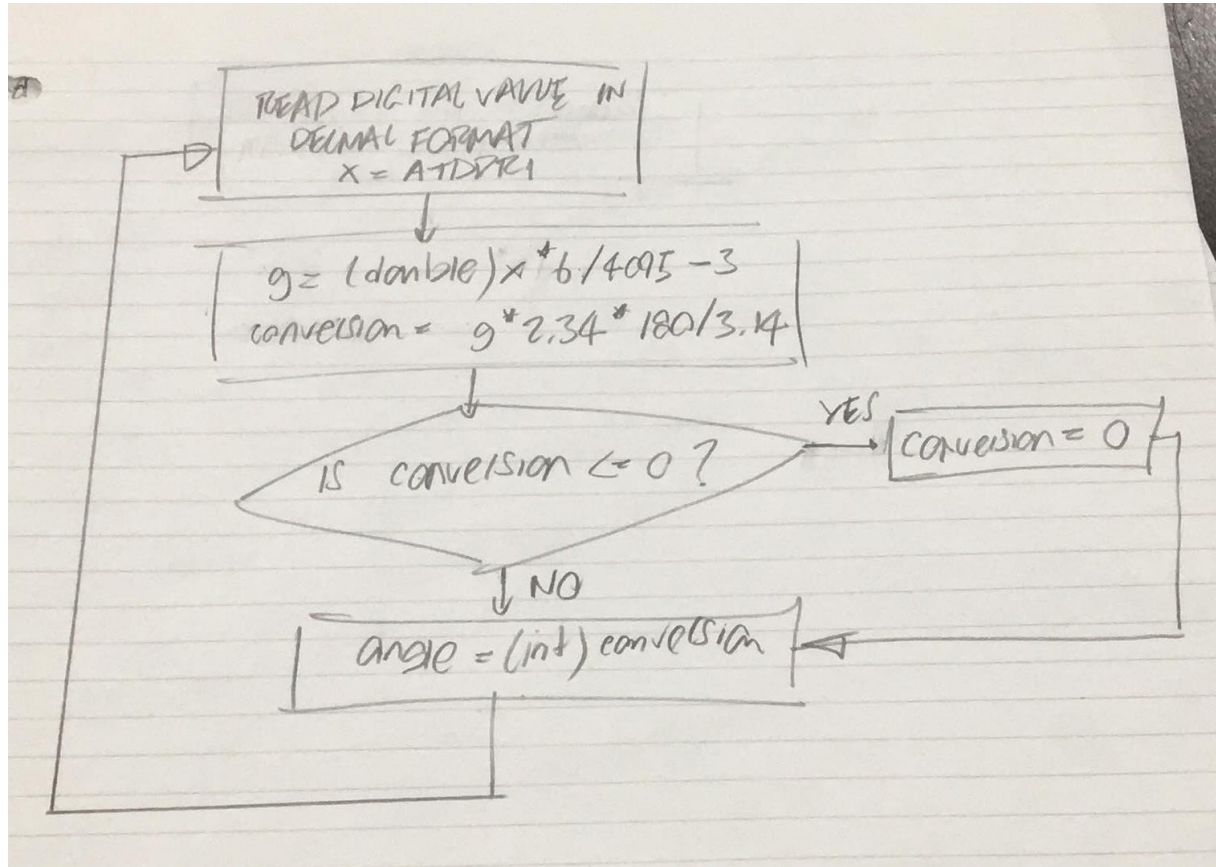 READ DIGITAL VALUE IN
DECIMAL FORMAT
X = ATDDR1
g = (double)x*6/4095-3
conversion = g*2.34*180/3.14
Is conversion <= 0?
YES
conversion = 0
NO
angle = (int) conversion